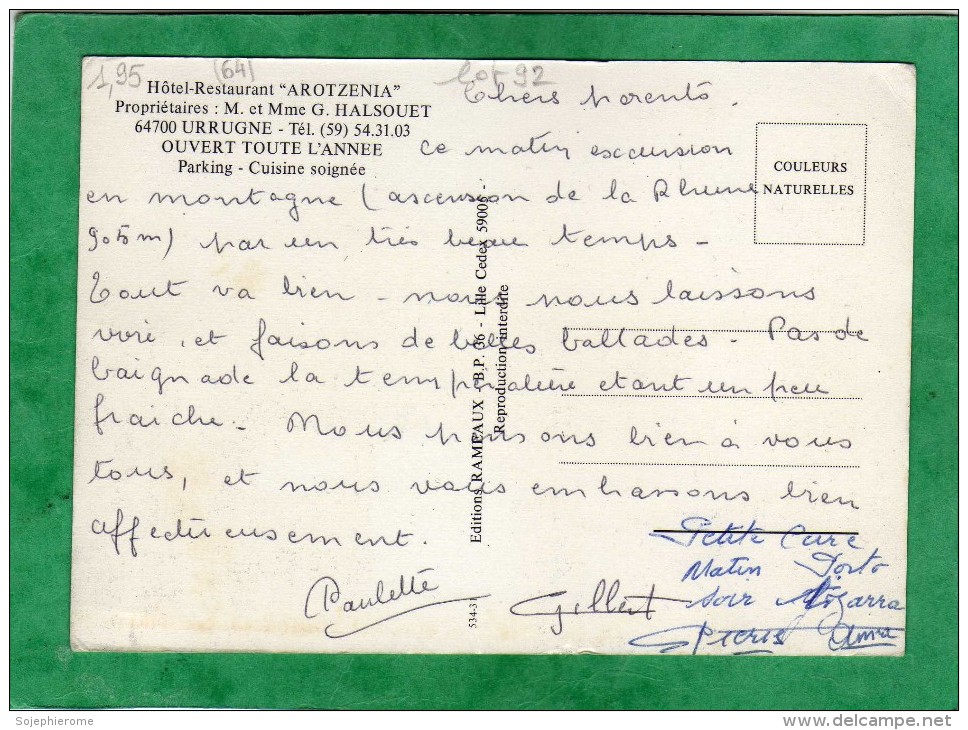 1,95
(64)
lot 92
Hôtel-Restaurant "AROTZENIA"
Propriétaires : M. et Mme G. HALSOUET
64700 URRUGNE - Tél. (59) 54.31.03
OUVERT TOUTE L'ANNEE
Parking - Cuisine soignée
COULEURS
NATURELLES
Chers parents,
ce matin excursion
en montagne (ascension de la Rhune
905m) par un très beau temps -
Tout va bien - nous nous laissons
vivre, et faisons de belles ballades - Pas de
baignade la température étant un peu
fraiche - Nous pensons bien à vous
tous, et nous vous embrassons bien
affectueusement.
Paulette
Gilbert
Petite Cure
Matin Porto
Soir Izarra
Editions RAMEAUX - B.P. 36 - Lille Cedex 59005 -
Reproduction interdite
534-31
Sojephierome
www.delcampe.net